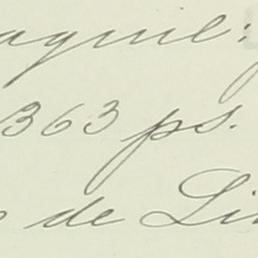 aquil:
363 ps.
de Li